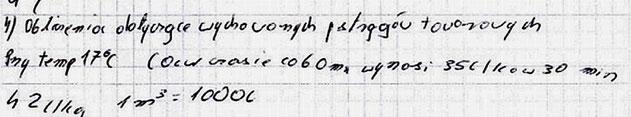 4) Obliczenia dotyczące wychowanych pstrągów towarowych
Przy temp 17°C (O₂ w czasie co 60 m. wynosi 35 l/kg w 30 min
42 l/kg 1 m³ = 1000 l